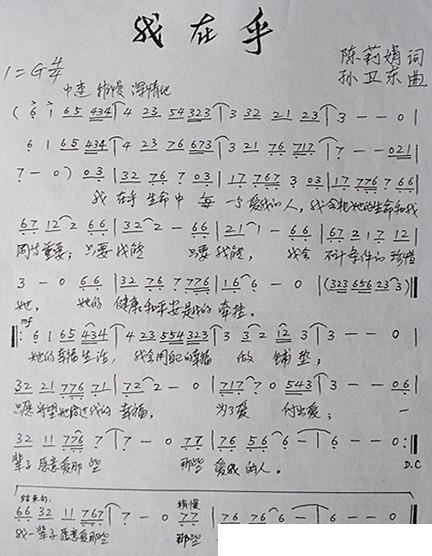 我在乎
陈莉娟 词
1=G 4/4
孙卫东 曲
中速 稍慢 深情地
(6 1 65 434 | 4 23 54 323 | 3 32 21 23 | 3 - - 0 |
6 1 65 434 | 4 23 76 673 | 3 21 76 717 | 7 - - 021 |
7 - 0) 03 | 32 76 7 03 | 17 767 3 03 | 17 776 7 66 |
我 在乎 生命中 每 一个 爱我的人, 我会把她的生命和我
67 12 2 66 | 32 2 - 66 | 21 1 - 66 | 67 21 7 12 |
同等重要; 只要我能 只要我能, 我会 不计条件的 珍惜
3 - 0 66 | 32 76 7 776 | 16 6 - 0 | (323 656 23 3) |
她, 她的 健康和平安是我的 牵挂.
mf
6 1 65 434 | 4 23 554 323 | 3 3 2 12 3 | 3 - - 0 |
她的幸福生活, 我会用自己的幸福 做 铺垫;
32 21 776 71 | 72 2 - 0 | 717 7 0 543 | 3 - - 06 |
只愿 幸福, 为了爱 付出爱; 一
32 11 776 7 | 7 - 0 77 | 76 56 6 - | 6 - - 0 :||
辈子愿意爱那些 那些 爱我的人.
D.C
结束句 稍慢
66 32 11 767 | 7 - 0 77 | 76 76 6 - | 6
我一辈子愿意爱那些 那些